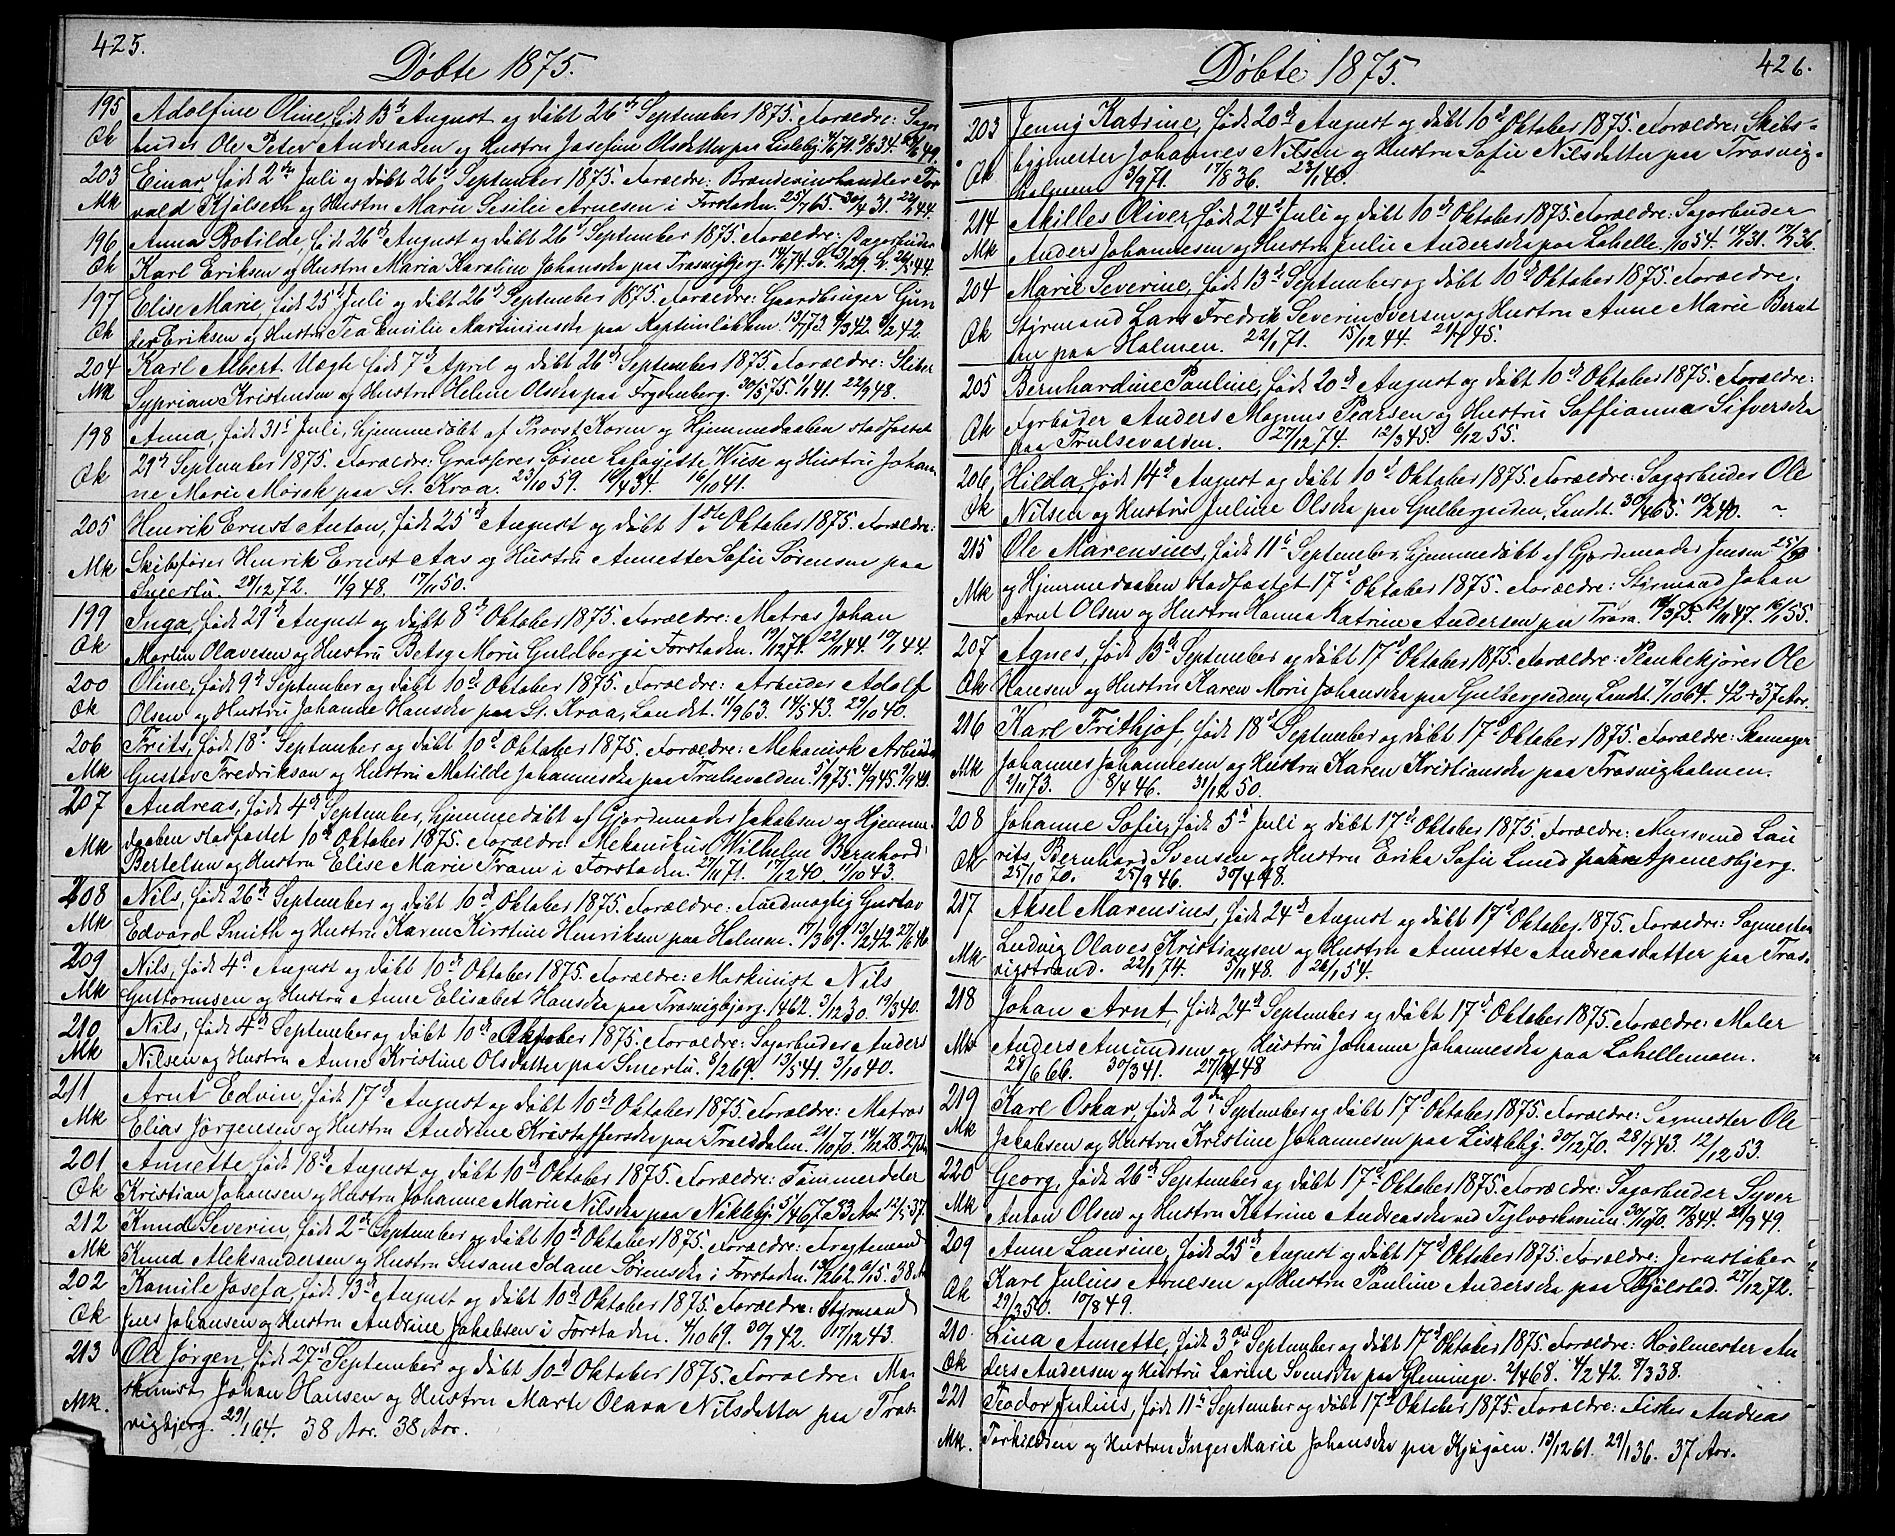 425.
Døbte 1875.
195 Adolfine Oline, født 13de August og døbt 26de September 1875. Forældre: Sagar
Qk buder Ole Peter Andreasen og Hustru Josefine Olsdatter paa Lisleby.
203 Einar, født 2den Juli og døbt 26de September 1875. Forældre: Brændevinshandler Tor
Mk vald Kjølsen og Hustru Marie Sesilie Arnesen i Forstaden. 25/7 65. 30/4 31. 22/1 44.
196 Anna Botilde, født 26de August og døbt 26de September 1875. Forældre: Sagarbuder
Qk Karl Eriksen og Hustru Maria Karoline Johanska paa Trosvigbjerg.
197 Elise Marie, født 25de Juli og døbt 26de September 1875. Forældre: Gaardbruger Gun
Qk der Eriksen og Hustru Tea Emilie Martininska paa Kaptinløkken. 13/7 73. 8/3 42. 8/2 42.
204 Karl Albert Uægte født 7de April og døbt 26de September 1875. Forældre: Sliber
Mk Syprian Kristensen og Hustru Helene Olska paa Frydenberg. 30/5 75. 1/1 41. 22/9 48.
198 Anna, født 31te Juli, hjemmedøbt af Provst Koren og Hjemmedaaben stadfæstet
29de September 1875. Forældre: Grosserer Søren Lafayette Wiese og Hustru Johan
Qk ne Marie Mørch paa St. Kroa. 23/10 59. 16/4 34. 16/10 41.
205 Henrik Ernst Anton, født 25de August og døbt 1ste Oktober 1875. Forældre:
Mk Skibsfører Henrik Ernst Aas og Hustru Annette Sofie Sørensen paa
Smertu. 28/12 72. 11/9 48. 17/1 50.
199 Inga, født 29de August og døbt 8de Oktober 1875. Forældre: Matros Johan
Qk Martin Olavesen og Hustru Betsy Marie Guldberg i Forstaden. 19/12 71. 22/11 44. 10/1 44.
200 Oline, født 9de September og døbt 10de Oktober 1875. Forældre: Arbuder Adolf
Qk Olsen og Hustru Johanne Hanska paa St. Kroa, Landet. 11/9 63. 14/5 43. 29/10 40.
206 Frits, født 18de September og døbt 10de Oktober 1875. Forældre: Mekanisk Arbeider
Mk Gustav Fredriksen og Hustru Matilde Johanneska paa Trulsevalden. 5/9 75.
207 Andreas, født 4de September, hjemmedøbt af Gjordemoder Jakobsen og Hjemme
daaben stadfæstet 10de Oktober 1875. Forældre: Mekanikus Wilhelm Bernhard
Mk Bertelsen og Hustru Elise Marie Fram i Forstaden. 27/11 71. 17/12 40. 11/10 43.
208 Nils, født 26de September og døbt 10de Oktober 1875. Forældre: Fuldmægtig Gustav
Mk Edvard Smith og Hustru Karen Kirstine Henriksen paa Holmen. 17/3 69. 13/2 42. 27/6 46
209 Nils, født 4de August og døbt 10de Oktober 1875. Forældre: Maskinist Nils
Mk Guttormsen og Hustru Anne Elisabet Hanska paa Trosvigbjerg. 1/4 62. 3/12 30. 19/3 40.
210 Nils, født 4de September og døbt 10de Oktober 1875. Forældre: Sagarbuder Anders
Mk Nilsen og Hustru Anne Kristine Olsdatter paa Smertu. 8/2 69. 13/5 41. 3/10 40.
211 Arnt Edvin, født 17de August og døbt 10de Oktober 1875. Forældre: Matros
Mk Elias Jørgensen og Hustru Andrine Kristofferska paa Traalddalen. 21/10 70. 14/12 28.
201 Annette, født 18de August og døbt 10de Oktober 1875. Forældre: Tømmerdeler
Qk Kristian Johansen og Hustru Johanne Marie Nilska paa Nøkleby.
212 Knud Severin, født 2den September og døbt 10de Oktober 1875. Forældre: Fragtemand
Mk Knud Aleksandersen og Hustru Susane Idane Sørenska i Forstaden.
202 Kamile Josefa, født 13de August og døbt 10de Oktober 1875. Forældre: Styrmand
Qk Jens Johansen og Hustru Andrine Jakobsen i Forstaden. 4/10 69. 30/9 42. 17/12 43.
213 Ole Jørgen, født 27de September og døbt 10de Oktober 1875. Forældre: Ma
Mk. skinist Johan Hansen og Hustru Marte Olava Nilsdatter paa Tros
vigbjerg. 29/1 64. 38 Aar. 38 Aar.
Døbte 1875.
426.
203 Jenny Katrine, født 20de August og døbt 10de Oktober 1875. Forældre: Skibs-
bygmester Johannes Nilsen og Hustru Sofie Nilsdatter paa Trosvig-
Qk holmen 3/9 71. 17/8 36. 23/1 40.
214 Akilles Oliver, født 24de Juli og døbt 10de Oktober 1875. Forældre: Sagarbuder
Mk Anders Johannesen og Hustru Julie Anderska paa Lahelle.
204 Marie Severine, født 13de September og døbt 10de Oktober 1875. Forældre:
Styrmand Lars Fredrik Severin Iversen og Hustru Anne Marie Bernt
Qk sen paa Holmen. 22/1 71. 15/12 44. 21/4 45.
205 Bernhardine Pauline, født 20de August og døbt 10de Oktober 1875. Forældre:
Fyrbøder Anders Magnus Pearsen og Hustru Saffianna Sifverska
Qk paa Trulsevalden. 27/12 74. 12/3 45. 6/12 55.
206 Hilda, født 14de August og døbt 10de Oktober 1875. Forældre: Sagarbuder Ole
Qk Nilsen og Hustru Juline Olska paa Gulbergsiden, Landet. 30/4 65. 10/2 40.
215 Ole Marensius, født 11te September, hjemmedøbt af Gjordemoder Jensen
Mk og Hjemmedaaben stadfæstet 17de Oktober 1875. Forældre: Styrmand Johan
Arnt Olsen og Hustru Hanna Katrine Andersen paa Trara. 19/3 75. 12/11 47. 16/1 55.
207 Agnes, født 13de September og døbt 17de Oktober 1875. Forældre: Plankekjører Ole
Qk Hansen og Hustru Karen Marie Johanska paa Gulbergsiden, Landet. 7/10 64. 42 + 37 Aar.
216 Karl Frithjof, født 18de September og døbt 17de Oktober 1875. Forældre: Skomager
Mk Johannes Johannesen og Hustru Karen Kristianska paa Trosvigholmen.
2/11 73. 8/4 46. 31/12 50.
208 Johanne Sofie, født 5te Juli og døbt 17de Oktober 1875. Forældre: Mursvend Lau
Qk rits Bernhard Svensen og Hustru Erika Sofie Lund paa Apenesbjerg.
25/10 70. 25/9 46. 30/4 48.
217 Aksel Marensius, født 24de August og døbt 17de Oktober 1875. Forældre: Sagmester
Mk Ludvig Olaves Kristiansen og Hustru Annette Andreasdatter paa Tros-
vigstrand. 22/1 74. 3/11 48. 26/1 54.
218 Johan Arnt, født 24de September og døbt 17de Oktober 1875. Forældre: Maler
Mk Anders Amundsen og Hustru Johanne Johanneska paa Lahellemoen.
28/6 66. 30/3 41. 27/ 48
219 Karl Oskar, født 2den September og døbt 17de Oktober 1875. Forældre: Sagmester Ole
Mk Jakobsen og Hustru Kristine Johannesen paa Lisleby. 30/12 70. 28/7 43. 12/12 53.
220 Georg, født 26de September og døbt 17de Oktober 1875. Forældre: Sagarbuder Syver
Mk Anton Olsen og Hustru Katrine Andreaska ved Teglværksmien. 30/10 70. 17/8 44. 21/9 49.
209 Anne Laurine, født 25de August og døbt 17de Oktober 1875. Forældre: Jernstøber
Qk Karl Julius Arnesen og Hustru Pauline Anderska paa Bjølstad. 27/12 72.
29/3 50. 10/8 49.
210. Lina Annette, født 3die September og døbt 17de Oktober 1875. Forældre: Høvlmester An
Qk ders Andersen og Hustru Lovine Svenska paa Glemminge. 2/4 68. 4/2 42. 8/3 38.
221 Teodor Julius, født 11te September og døbt 17de Oktober 1875. Forældre: Fisker Andreas
Mk. Torkildsen og Hustru Inger Marie Johanska paa Kjøgøen. 13/12 61. 29/1 36. 37 Aar.